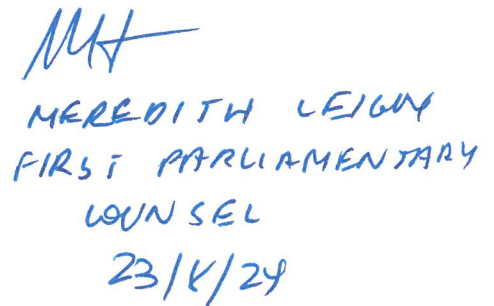 MEREDITH LEIGH
FIRST PARLIAMENTARY
COUNSEL
23/8/24